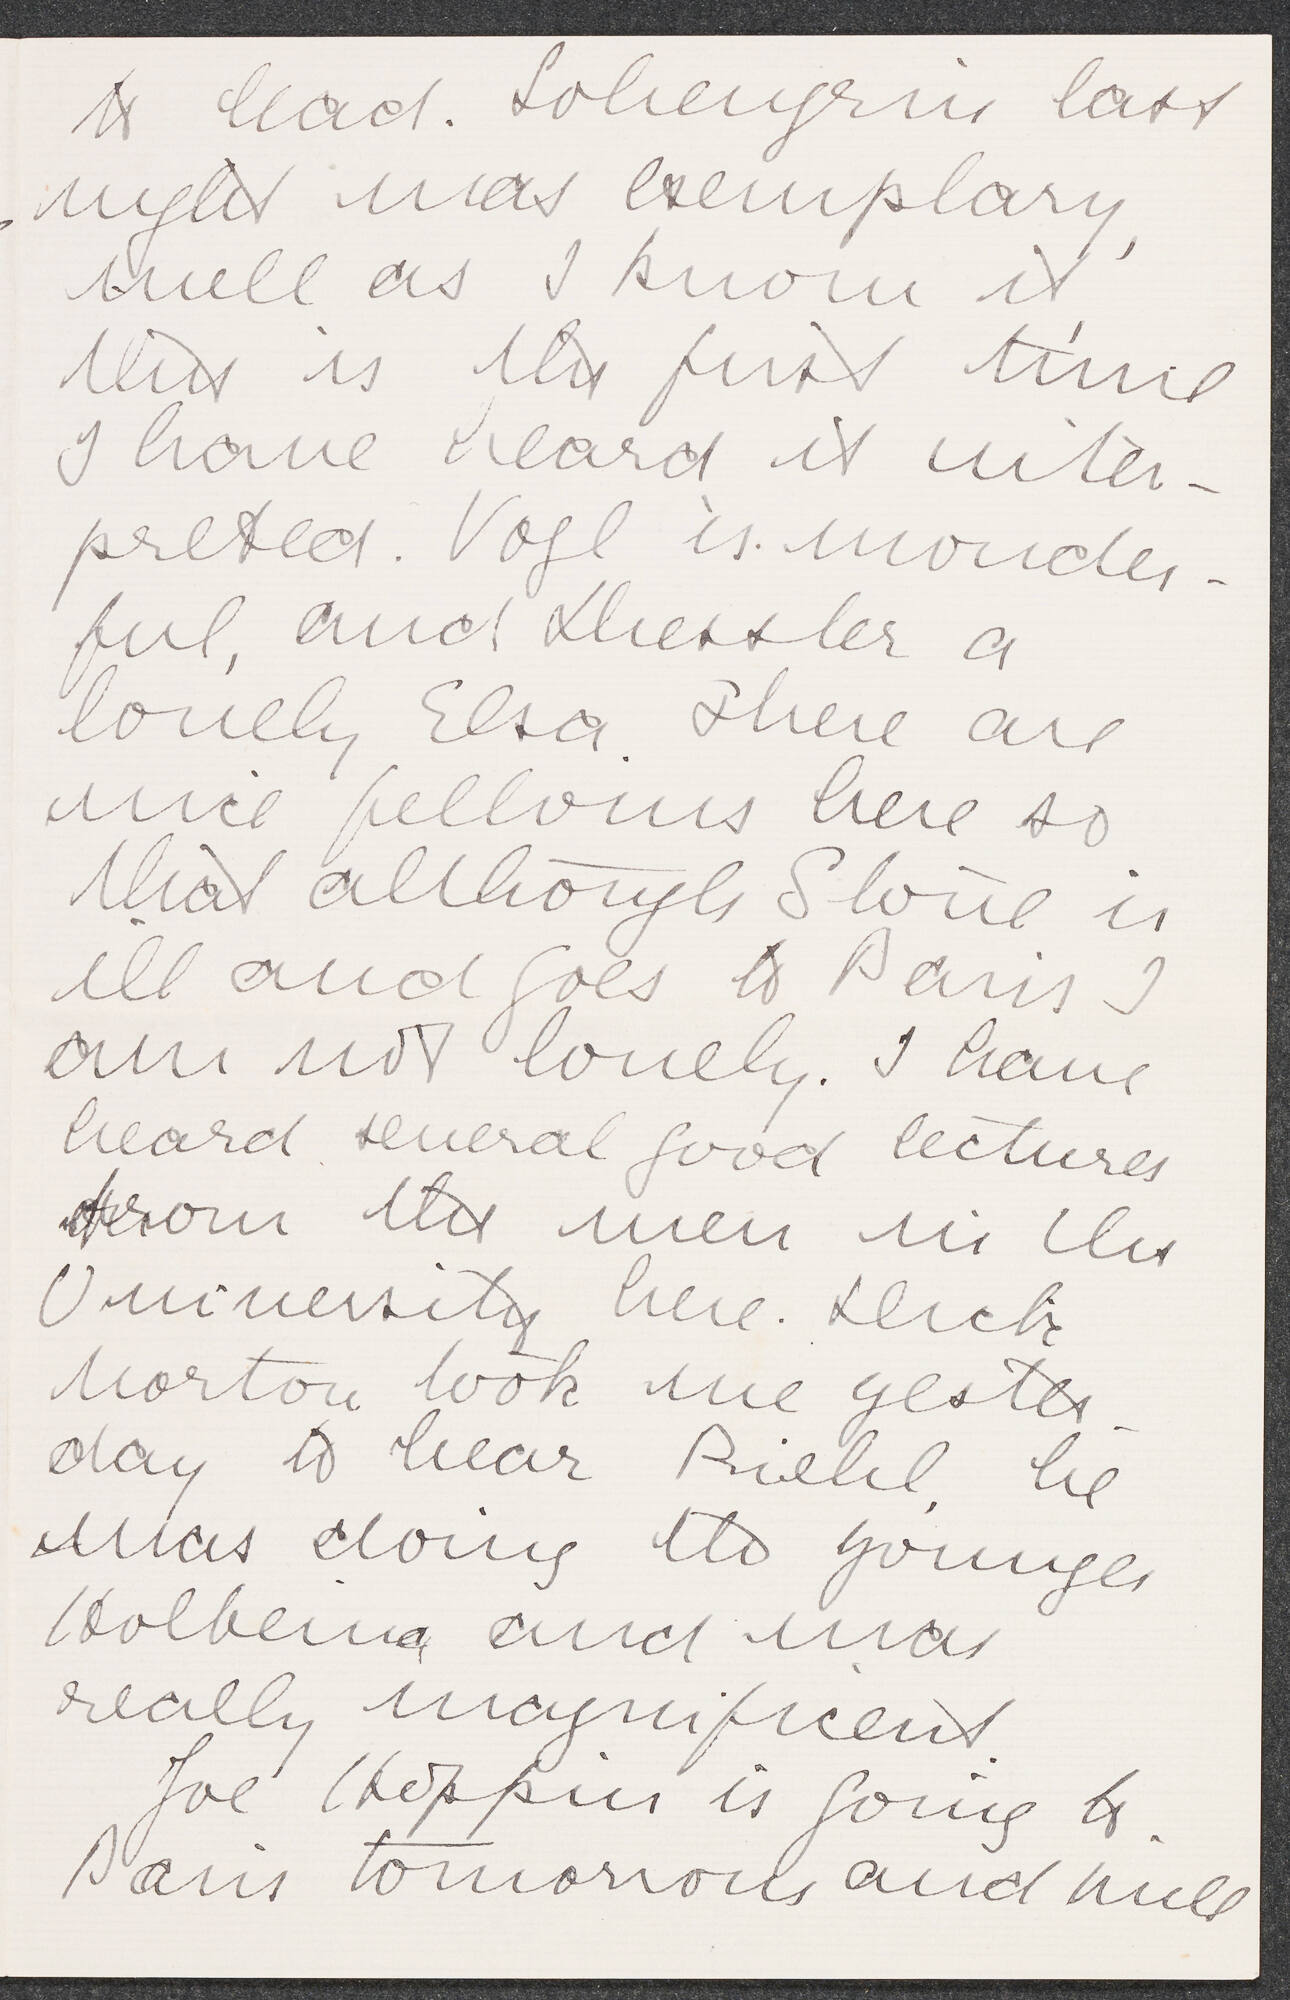 to lead. Lohengrin last
night was exemplary,
well as I know it,
this is the first time
I have heard it inter-
preted. Vogl is wonder-
ful, and Dressler a
lovely Elsa. There are
nice fellows here so
that although Stone is
ill and goes to Paris I
am not lonely. I have
heard several good lectures
from the men in the
University here. Dick
Norton took me yester-
day to hear Riehl, he
was doing the younger
Holbein and was
really magnificent.
Joe Hoppin is going to
Paris tomorrow and will